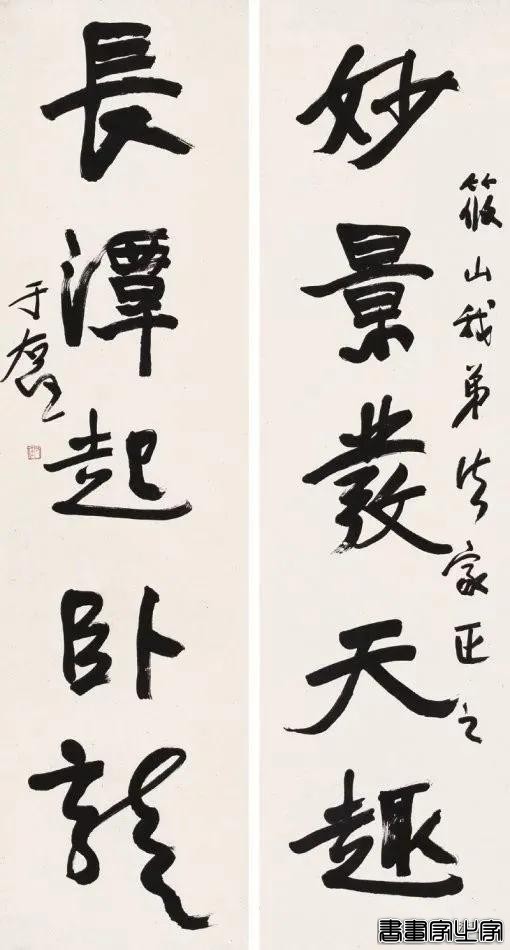 妙景叢天趣
筱山我弟法家正之
長潭起卧龍
于右任